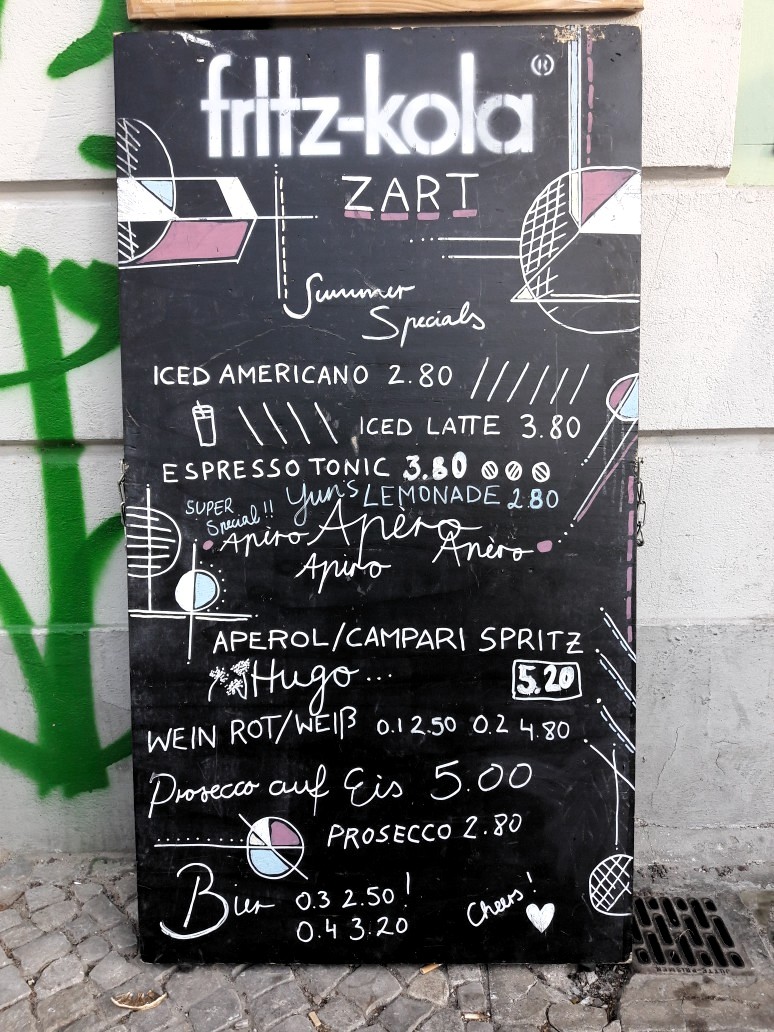 fritz-kola ®
ZART
Summer
Specials
ICED AMERICANO 2.80
ICED LATTE 3.80
ESPRESSO TONIC 3.80
SUPER Special!! Yun's LEMONADE 2.80
Apèro Apèro Apèro
Apèro
APEROL/CAMPARI SPRITZ
Hugo... 5.20
WEIN ROT/WEIß 0.1 2.50 0.2 4.80
Prosecco auf Eis 5.00
PROSECCO 2.80
Bier 0.3 2.50!
0.4 3.20
Cheers!